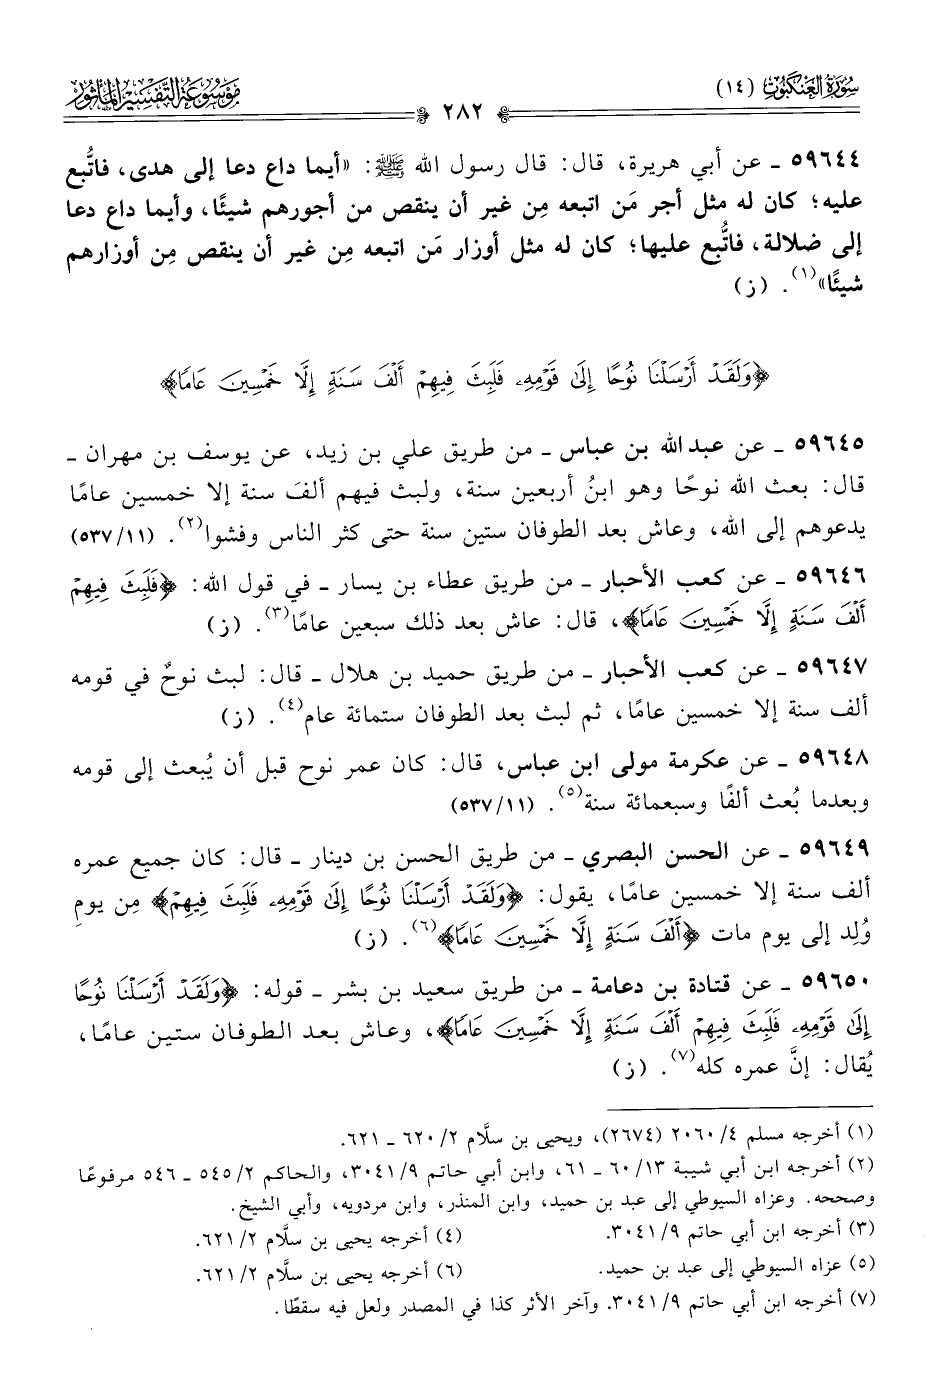 سورة العنكبوت (١٤)
٢٨٢
موسوعة التفسير المأثور
٥٩٦٤٤ ـ عن أبي هريرة، قال: قال رسول الله ﷺ: «أيما داع دعا إلى هدى، فاتُّبع
عليه؛ كان له مثل أجر مَن اتبعه مِن غير أن ينقص من أجورهم شيئًا، وأيما داع دعا
إلى ضلالة، فاتُّبع عليها؛ كان له مثل أوزار مَن اتبعه مِن غير أن ينقص مِن أوزارهم
شيئًا»(١). (ز)
﴿وَلَقَدْ أَرْسَلْنَا نُوحًا إِلَىٰ قَوْمِهِۦ فَلَبِثَ فِيهِمْ أَلْفَ سَنَةٍ إِلَّا خَمْسِينَ عَامًا﴾
٥٩٦٤٥ ـ عن عبد الله بن عباس ـ من طريق علي بن زيد، عن يوسف بن مهران ـ
قال: بعث الله نوحًا وهو ابنُ أربعين سنة، ولبث فيهم ألفَ سنة إلا خمسين عامًا
يدعوهم إلى الله، وعاش بعد الطوفان ستين سنة حتى كثر الناس وفشوا(٢). (١١/ ٥٣٧)
٥٩٦٤٦ ـ عن كعب الأحبار ـ من طريق عطاء بن يسار ـ في قول الله: ﴿فَلَبِثَ فِيهِمْ
أَلْفَ سَنَةٍ إِلَّا خَمْسِينَ عَامًا﴾، قال: عاش بعد ذلك سبعين عامًا(٣). (ز)
٥٩٦٤٧ ـ عن كعب الأحبار ـ من طريق حميد بن هلال ـ قال: لبث نوحٌ في قومه
ألف سنة إلا خمسين عامًا، ثم لبث بعد الطوفان ستمائة عام(٤). (ز)
٥٩٦٤٨ ـ عن عكرمة مولى ابن عباس، قال: كان عمر نوح قبل أن يُبعث إلى قومه
وبعدما بُعث ألفًا وسبعمائة سنة(٥). (١١/ ٥٣٧)
٥٩٦٤٩ ـ عن الحسن البصري ـ من طريق الحسن بن دينار ـ قال: كان جميع عمره
ألف سنة إلا خمسين عامًا، يقول: ﴿وَلَقَدْ أَرْسَلْنَا نُوحًا إِلَىٰ قَوْمِهِۦ فَلَبِثَ فِيهِمْ﴾ مِن يومِ
وُلِد إلى يوم مات ﴿أَلْفَ سَنَةٍ إِلَّا خَمْسِينَ عَامًا﴾(٦). (ز)
٥٩٦٥٠ ـ عن قتادة بن دعامة ـ من طريق سعيد بن بشر ـ قوله: ﴿وَلَقَدْ أَرْسَلْنَا نُوحًا
إِلَىٰ قَوْمِهِۦ فَلَبِثَ فِيهِمْ أَلْفَ سَنَةٍ إِلَّا خَمْسِينَ عَامًا﴾، وعاش بعد الطوفان ستين عامًا،
يُقال: إنَّ عمره كله(٧). (ز)
(١) أخرجه مسلم ٤/ ٢٠٦٠ (٢٦٧٤)، ويحيى بن سلَّام ٢/ ٦٢٠ ـ ٦٢١.
(٢) أخرجه ابن أبي شيبة ١٣/ ٦٠ ـ ٦١، وابن أبي حاتم ٩/ ٣٠٤١، والحاكم ٢/ ٥٤٥ ـ ٥٤٦ مرفوعًا
وصححه. وعزاه السيوطي إلى عبد بن حميد، وابن المنذر، وابن مردويه، وأبي الشيخ.
(٣) أخرجه ابن أبي حاتم ٩/ ٣٠٤١. (٤) أخرجه يحيى بن سلَّام ٢/ ٦٢١.
(٥) عزاه السيوطي إلى عبد بن حميد. (٦) أخرجه يحيى بن سلَّام ٢/ ٦٢١.
(٧) أخرجه ابن أبي حاتم ٩/ ٣٠٤١. وآخر الأثر كذا في المصدر ولعل فيه سقطًا.